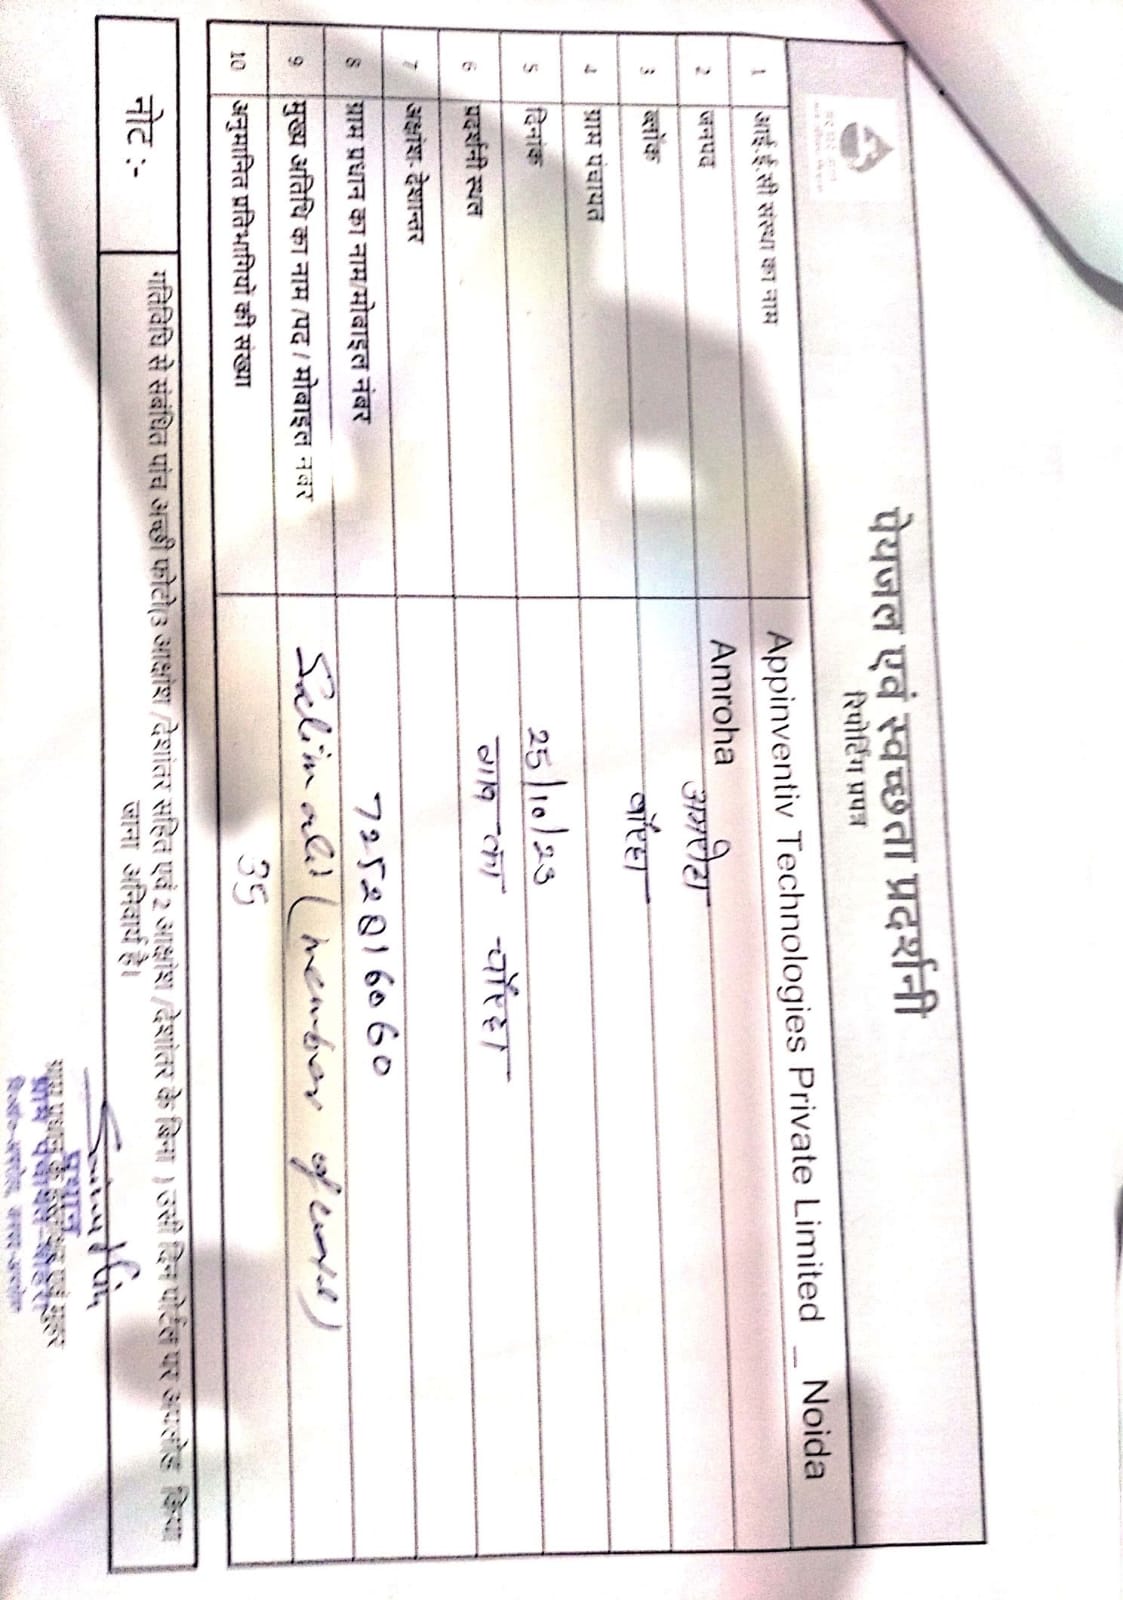 पेयजल एवं स्वच्छता प्रदर्शनी
रिपोर्टिंग प्रपत्र
1 आई.ई.सी संस्था का नाम Appinventiv Technologies Private Limited _ Noida
2 जनपद Amroha अमरोहा
3 ब्लॉक
4 ग्राम पंचायत
5 दिनांक 25/10/23
6 प्रदर्शनी स्थल
7 अक्षांश-देशान्तर
8 ग्राम प्रधान का नाम/मोबाइल नंबर 7252816060
9 मुख्य अतिथि का नाम /पद / मोबाइल नंबर Salim ali (member of
10 अनुमानित प्रतिभागियों की संख्या 35
नोट :- गतिविधि से संबंधित पांच अच्छी फोटो(3 आक्षांश /देशांतर सहित एवं 2 आक्षांश /देशांतर के बिना ) उसी दिन पोर्टल पर अपलोड किया
जाना अनिवार्य है।
प्रधान